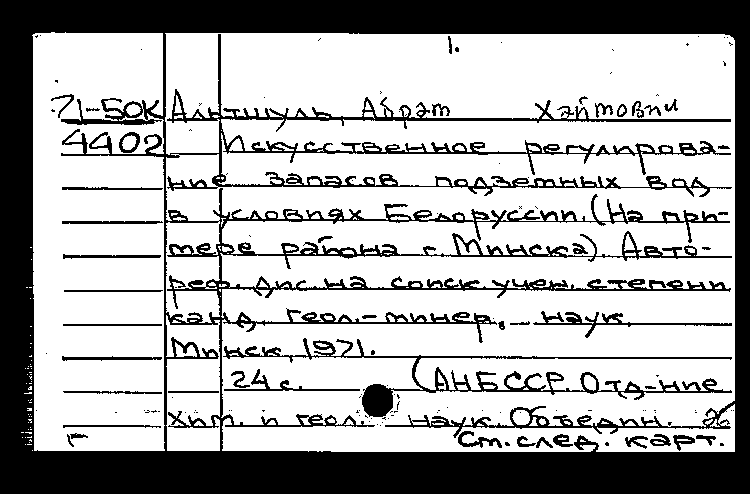 1.
71-50К Альтшуль, Абрам Хаймович
4402 Искусственное регулирова-
ние запасов подземных вод
в условиях Белоруссии. (На при-
мере района г. Минска). Авто-
реф. дис. на соиск. учен. степени
канд. геол.-минер. наук.
Минск, 1971.
24 с. (АНБССР. Отд-ние
хим. и геол. наук. Объедин.
см. след. карт.